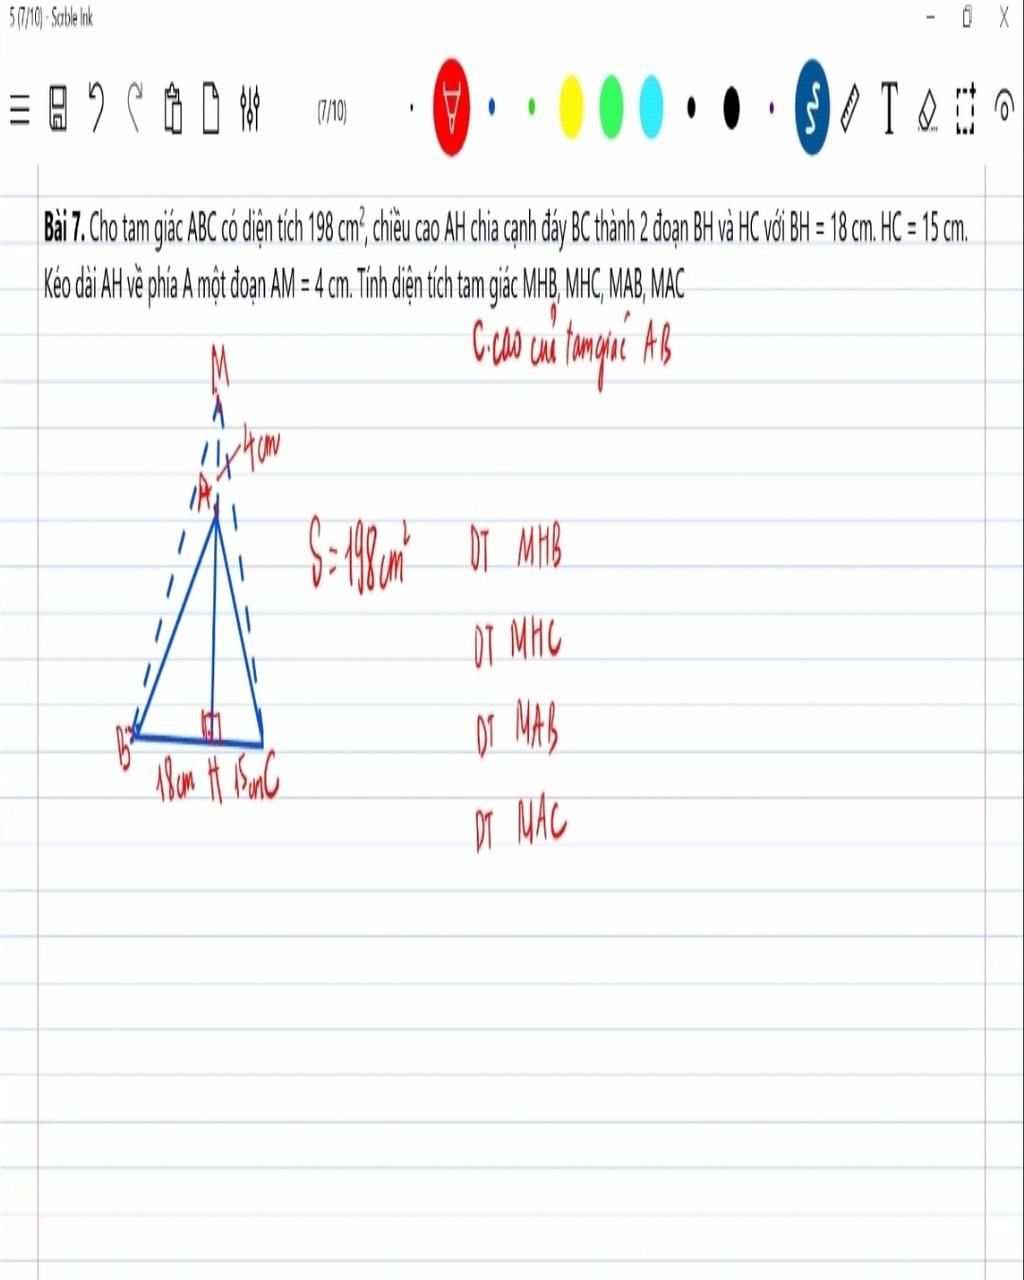 5 (7/10) - Scrble Ink
(7/10)
T
Bài 7. Cho tam giác ABC có diện tích 198 cm², chiều cao AH chia cạnh đáy BC thành 2 đoạn BH và HC với BH = 18 cm. HC = 15 cm.
Kéo dài AH về phía A một đoạn AM = 4 cm. Tính diện tích tam giác MHB, MHC, MAB, MAC
C.cao của tam giác AB
M
4cm
A
S = 198 cm²
DT MHB
DT MHC
DT MAB
B
C
18cm H 15cm
DT MAC